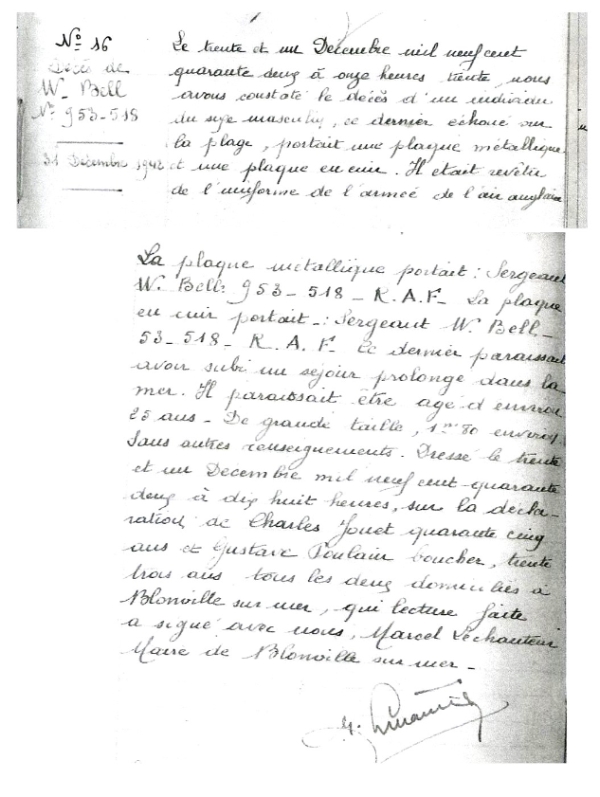 No 16
Décès de
W. Bell
No 953-518
31 Décembre 1942
Le trente et un Décembre mil neuf cent
quarante deux à onze heures trente, nous
avons constaté le décès d'un individu
du sexe masculin, ce dernier échoué sur
la plage, portait une plaque métallique
et une plaque en cuir. Il était revêtu
de l'uniforme de l'armée de l'air anglaise
La plaque métallique portait : Sergeant
W. Bell. 953-518 - R.A.F - La plaque
en cuir portait - : Sergeant W. Bell -
53-518 - R.A.F. Ce dernier paraissait
avoir subi un séjour prolongé dans la
mer. Il paraissait être agé d'environ
25 ans - De grande taille, 1m80 environ
Sans autres renseignements. Dressé le trente
et un Décembre mil neuf cent quarante
deux à dix huit heures, sur la décla-
ration de Charles Jouet quarante cinq
ans et Gustave Poulain boucher, trente
trois ans tous les deux domiciliés à
Blonville sur mer, qui lecture faite
a signé avec nous, Marcel Lechanteur
Maire de Blonville sur mer -